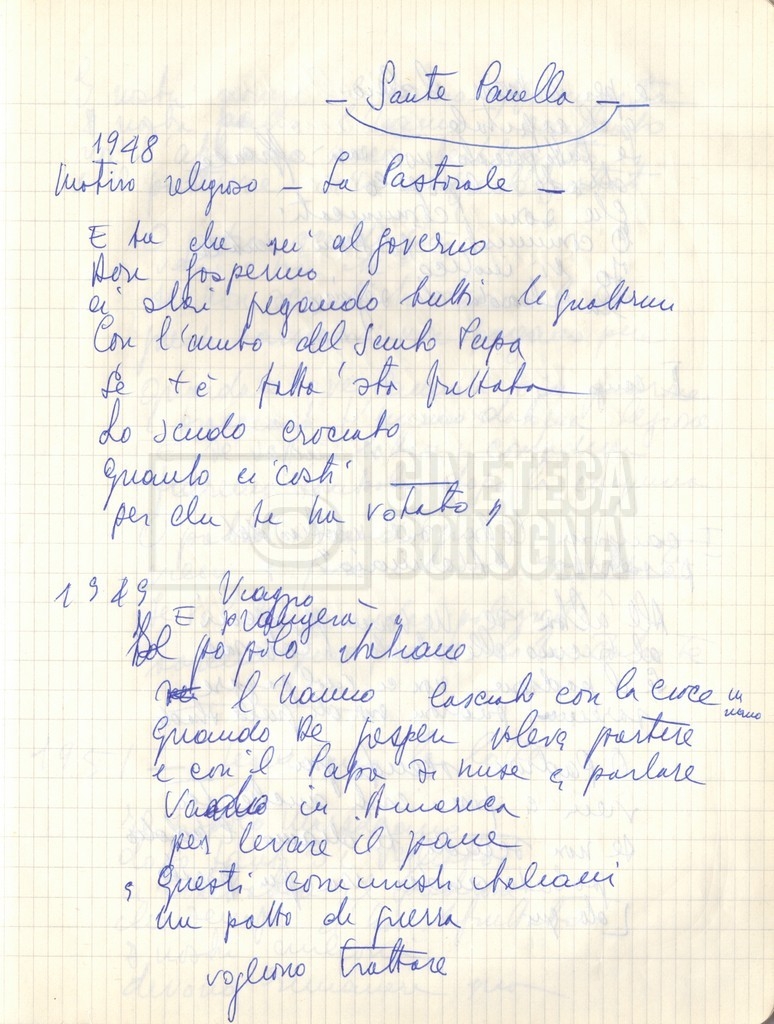 – Sante Panella –
1948
Motivo religioso – La Pastorale –
E tu che sei al governo
Don
ci stai pegando tutti le quattrini
Con l'aiuto del Santo Papa
Se t'è fatta 'sta
Lo Scudo crociato
Quanto ci costi
per chi te ha votato"
CINETECA
BOLOGNA
1949 Viagno
E piangerà
popolo italiano
l'hanno lasciato con la croce in
mano
Quando De Gasperi voleva partire
e con il Papa si mise a parlare
Va in America
per levare il pane
Questi comunisti italiani
un patto di guerra
vogliono trattare